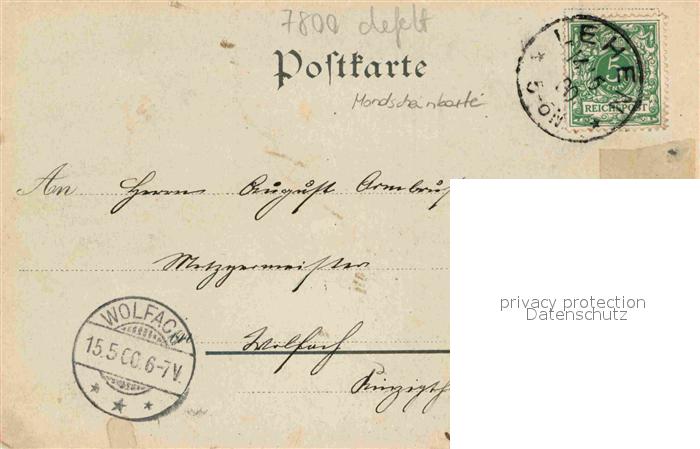 7800 defekt
Postkarte
Mondscheinkarte
LEHEN
5
REICHSPOST
An Herrn August Armbrus
Metzgermeister
privacy protection
Datenschutz
WOLFACH
15.5.00.6-7V.
Wolfach
Kinzigth